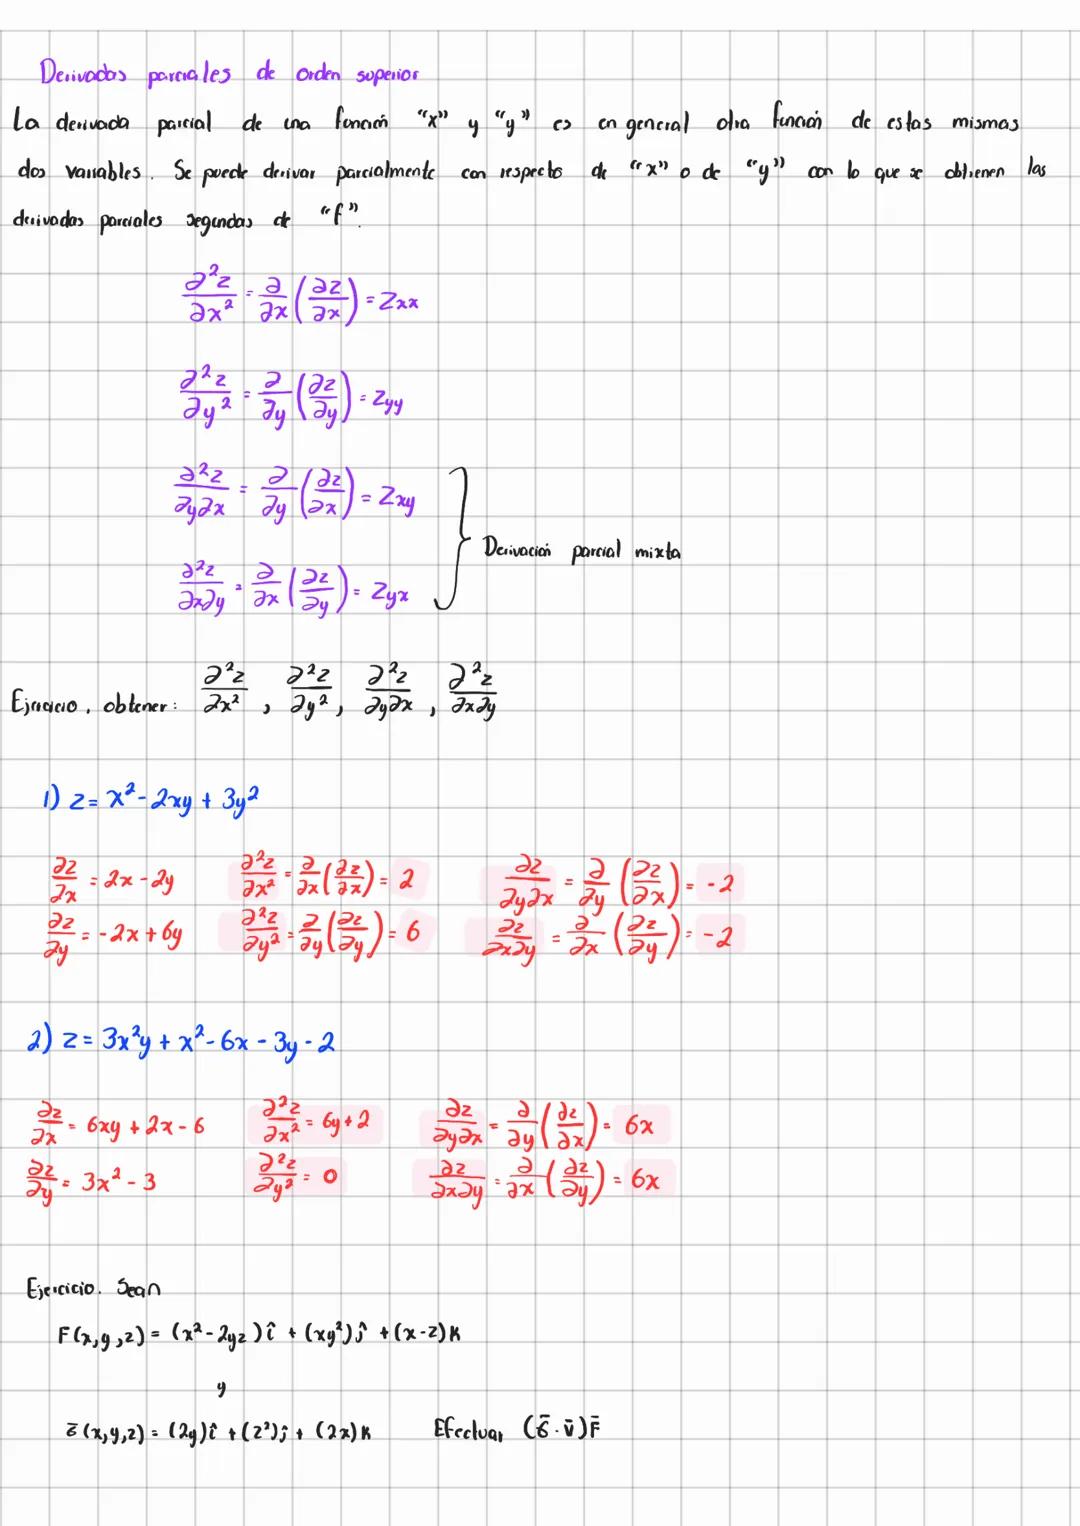 Derivadas parciales de orden superior
La derivada parcial de una función "x" y "y" es en general otra función de estas mismas
dos variables. Se puede derivar parcialmente con respecto de "x" o de "y" con lo que se obtienen las
derivadas parciales segundas de "f".
∂²z/∂x² = ∂/∂x (∂z/∂x) = Zxx
∂²z/∂y² = ∂/∂y (∂z/∂y) = Zyy
∂²z/∂y∂x = ∂/∂y (∂z/∂x) = Zxy
Derivación parcial mixta
∂²z/∂x∂y = ∂/∂x (∂z/∂y) = Zyx
Ejercicio, obtener: ∂²z/∂x² , ∂²z/∂y² , ∂²z/∂y∂x , ∂²z/∂x∂y
1) z = x² - 2xy + 3y²
∂z/∂x = 2x - 2y ∂²z/∂x² = ∂/∂x (∂z/∂x) = 2 ∂z/∂y∂x = ∂/∂y (∂z/∂x) = -2
∂z/∂y = -2x + 6y ∂²z/∂y² = ∂/∂y (∂z/∂y) = 6 ∂z/∂x∂y = ∂/∂x (∂z/∂y) = -2
2) z = 3x²y + x² - 6x - 3y - 2
∂z/∂x = 6xy + 2x - 6 ∂²z/∂x² = 6y + 2 ∂z/∂y∂x = ∂/∂y (∂z/∂x) = 6x
∂z/∂y = 3x² - 3 ∂²z/∂y² = 0 ∂z/∂x∂y = ∂/∂x (∂z/∂y) = 6x
Ejercicio. Sean
F(x,y,z) = (x² - 2yz)î + (xy²)ĵ + (x-z)k
y
(x,y,z) = (2y)î + (z²)j + (2x)k Efectuar